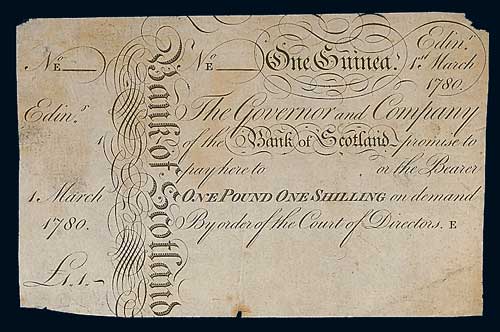 No E
No E
One Guinea.
Edinr.
1st March
1780.
Edinr.
1 March
1780.
£1.1.-
Bank of Scotland
The Governor and Company
of the Bank of Scotland promise to
pay here to or the Bearer
ONE POUND ONE SHILLING on demand
By order of the Court of Directors. E